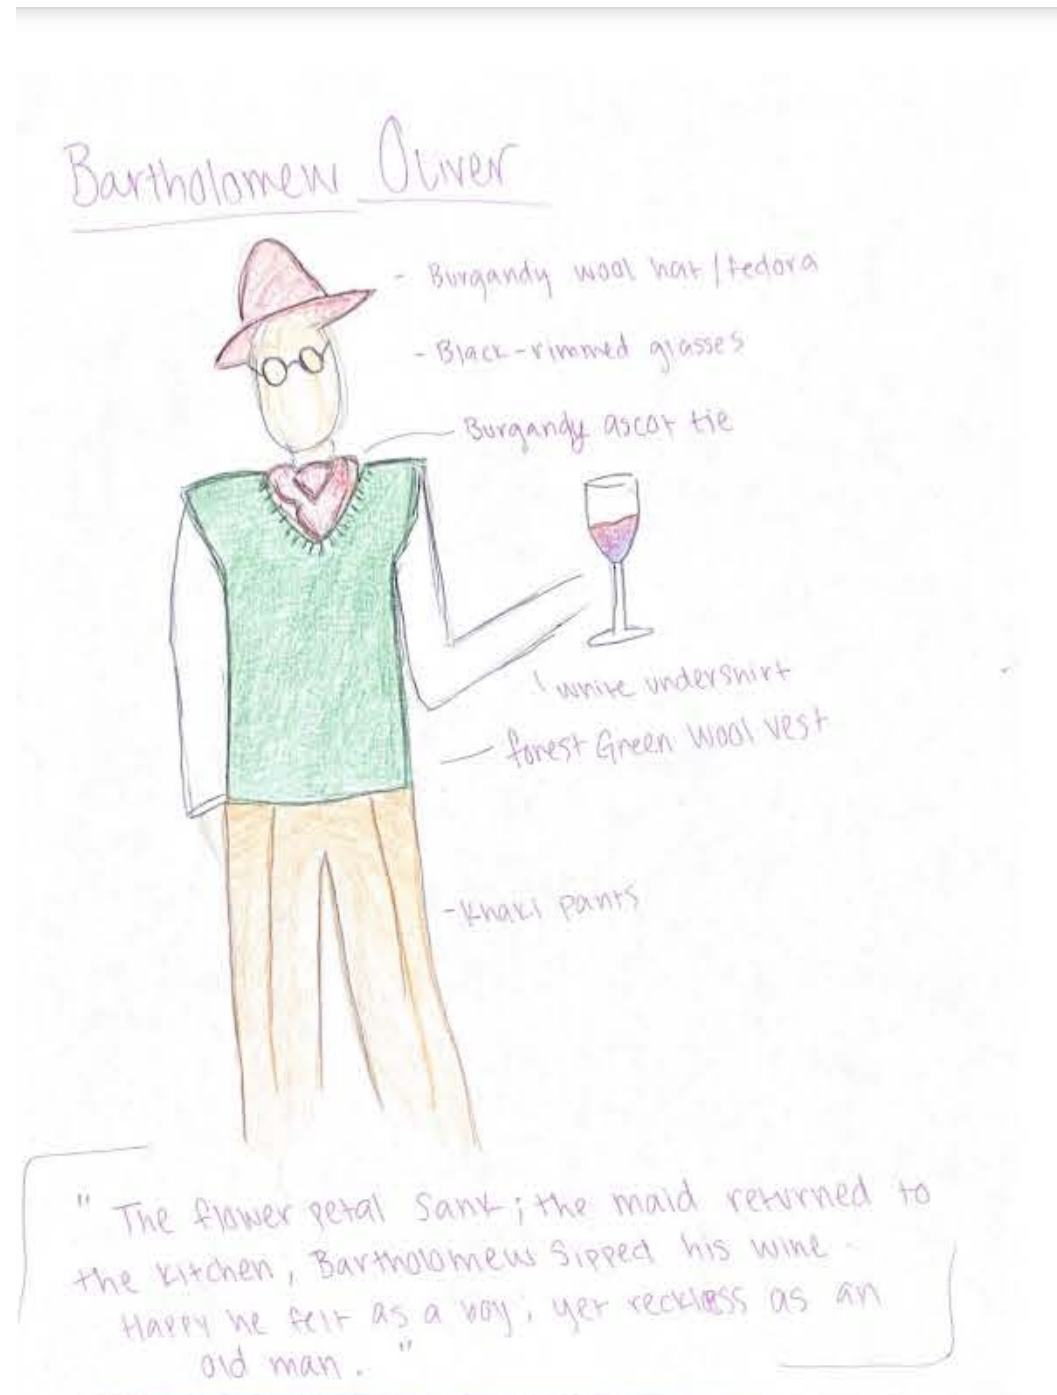 Bartholomew Oliver
- Burgandy wool hat/fedora
- Black-rimmed glasses
Burgandy ascot tie
white undershirt
forest Green Wool vest
- Khaki pants
" The flower petal Sank; the maid returned to
the kitchen, Bartholomew Sipped his wine.
Happy he felt as a boy; yet reckless as an
old man. "